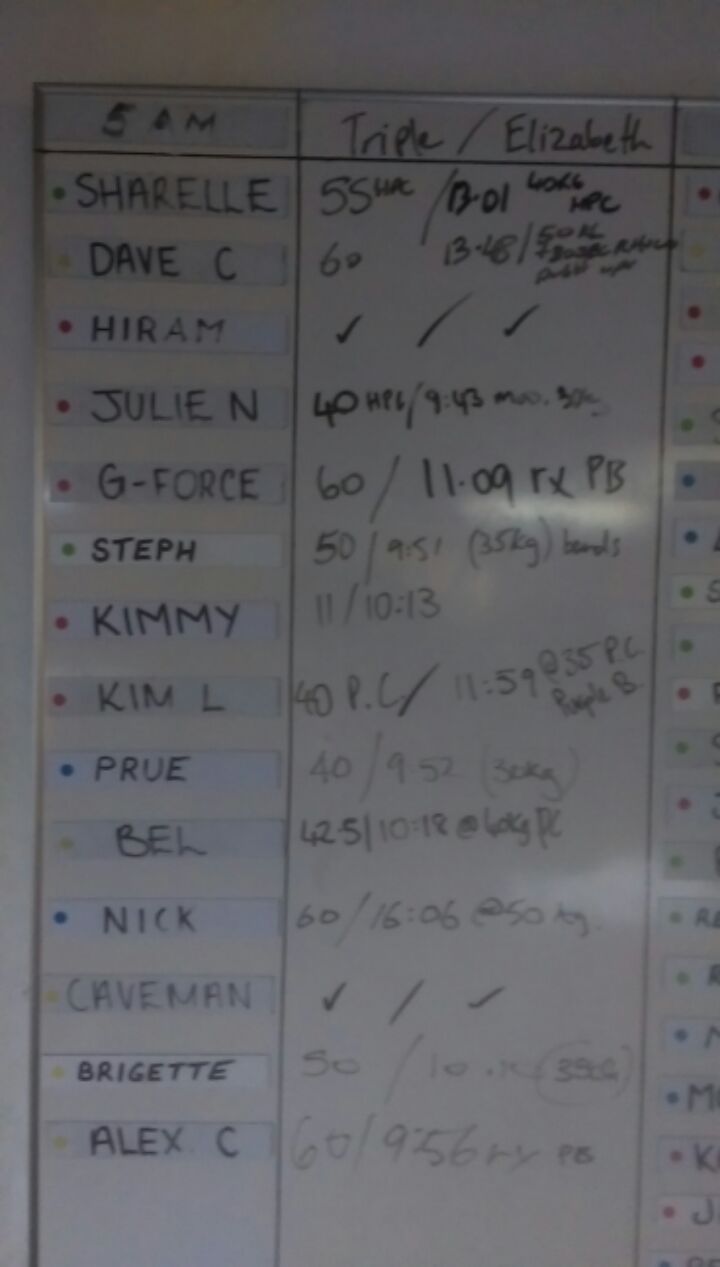 5 AM Triple / Elizabeth
SHARELLE 55 HPC / 13.01 40KG HPC
DAVE C 60 13.48 / 50 KG
HIRAM ✓ / ✓
JULIE N 40 HPC / 9:43
G-FORCE 60 / 11.09 rx PB
STEPH 50 / 9:51 (35kg) bands
KIMMY 11 / 10:13
KIM L 40 P.C / 11:59 @35 P.C
Purple B.
PRUE 40 / 9.52 (30kg)
BEL 42.5 / 10:18 @ 40kg PC
NICK 60 / 16:06 @50 kg.
CAVEMAN ✓ / ✓
BRIGETTE 50 / 10
ALEX C 60 / 9:56 rx PB